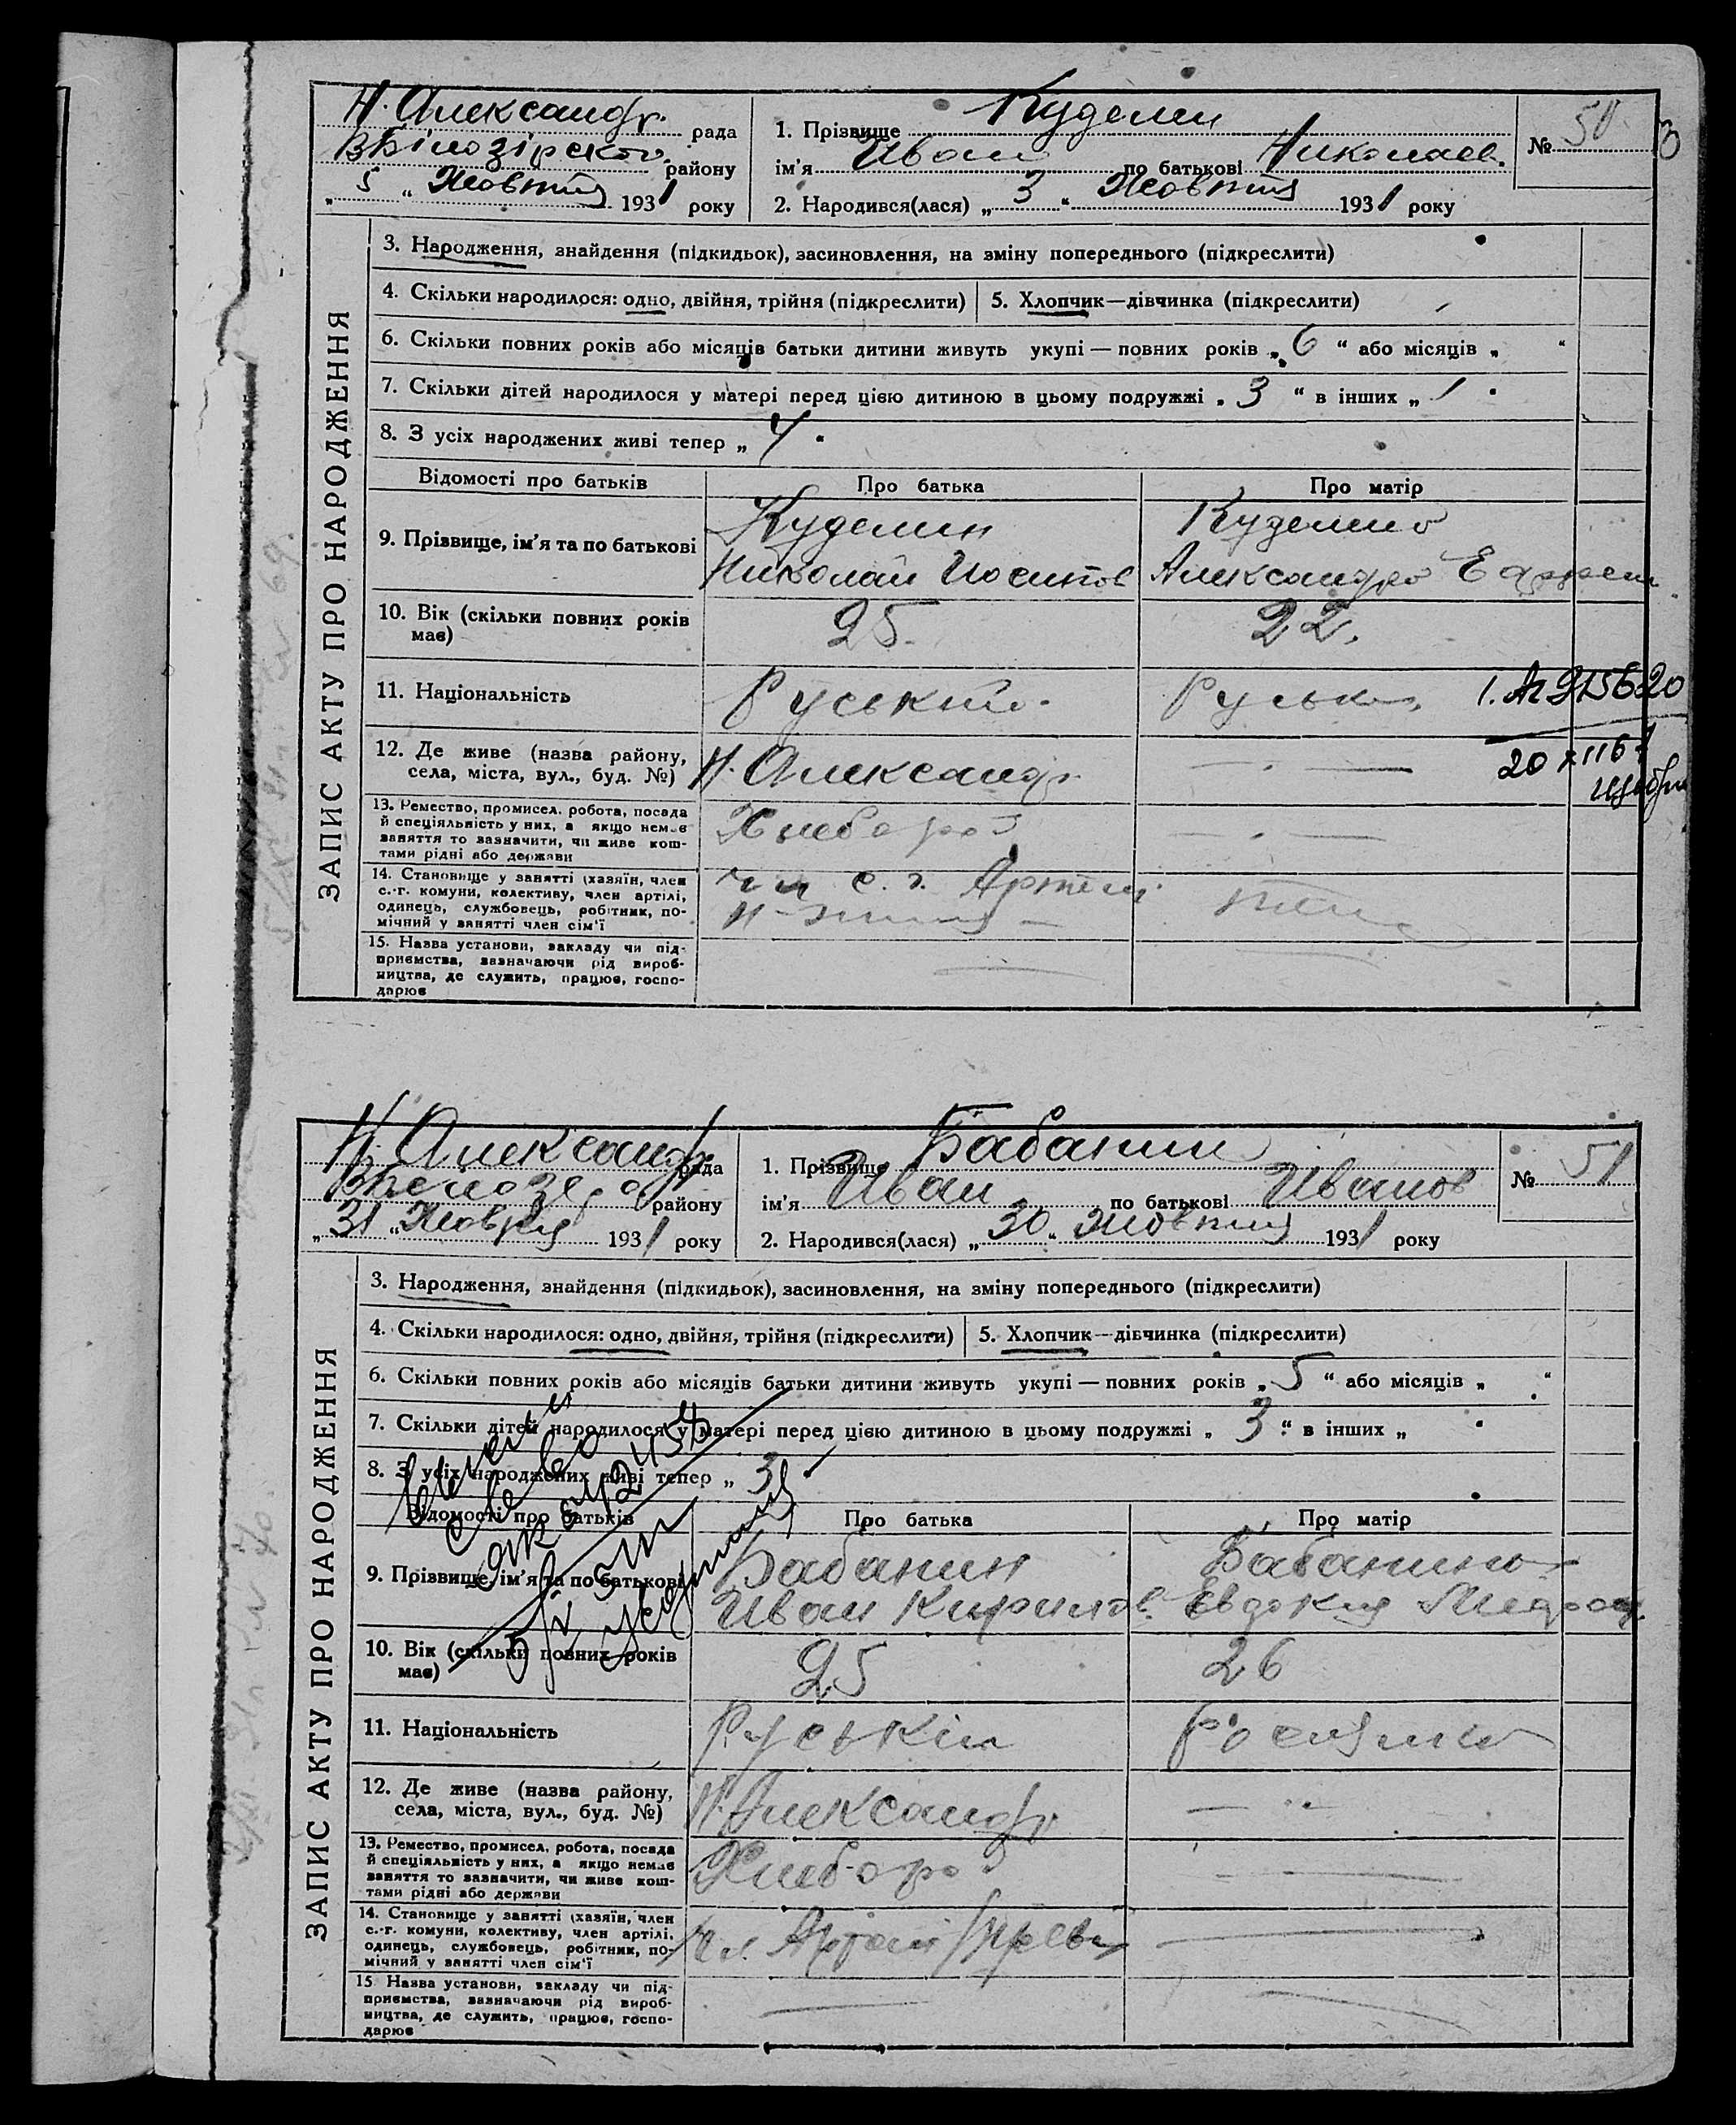 Н. Александр. рада
ВБілозірсько. району
„ 5 “ Жовтня 1931 року
1. Прізвище Куделин
ім'я Иван по батькові Николаев.
2. Народився(лася) „ 3 “ Жовтня 1931 року
№ 50
ЗАПИС АКТУ ПРО НАРОДЖЕННЯ
3. Народження, знайдення (підкидьок), засиновлення, на зміну попереднього (підкреслити)
4. Скільки народилося: одно, двійня, трійня (підкреслити) 5. Хлопчик—дівчинка (підкреслити)
6. Скільки повних років або місяців батьки дитини живуть укупі — повних років „ 6 “ або місяців „ “
7. Скільки дітей народилося у матері перед цією дитиною в цьому подружжі „ 3 “ в інших „ 1 “
8. З усіх народжених живі тепер „ 4 “
Відомості про батьків Про батька Про матір
9. Прізвище, ім'я та по батькові
Куделин
Николай Иосипов
Куделино
Александра Ефрем
10. Вік (скільки повних років
має)
25. 22.
11. Національність Руський. Руська
1. Аг 915620
12. Де живе (назва району,
села, міста, вул., буд. №)
Н. Александр. — „ —
13. Ремество, промисел, робота, посада
й спеціяльність у них, а якщо немає
заняття то зазначити, чи живе кош-
тами рідні або держави
Хлебороб — „ —
14. Становище у занятті (хазяїн, член
с.-г. комуни, колективу, член артілі,
одинець, службовець, робітник, по-
мічний у занятті член сім'ї
чл с. г. Артели
15. Назва установи, закладу чи під-
приємства, зазначаючи рід вироб-
ництва, де служить, працює, госпо-
дарює
Н. Александр рада
району
„ 31 “ Жовтня 1931 року
1. Прізвище Бабанин
ім'я Иван по батькові Иванов
2. Народився(лася) „ 30 “ Жовтня 1931 року
№ 51
ЗАПИС АКТУ ПРО НАРОДЖЕННЯ
3. Народження, знайдення (підкидьок), засиновлення, на зміну попереднього (підкреслити)
4. Скільки народилося: одно, двійня, трійня (підкреслити) 5. Хлопчик—дівчинка (підкреслити)
6. Скільки повних років або місяців батьки дитини живуть укупі — повних років „ 5 “ або місяців „ “
7. Скільки дітей народилося у матері перед цією дитиною в цьому подружжі „ 3 “ в інших „ “
8. З усіх народжених живі тепер „ 3 “
Відомості про батьків Про батька Про матір
9. Прізвище, ім'я та по батькові
Бабанин
Иван Кирилов.
Бабанино
Евдокия
10. Вік (скільки повних років
має)
25 26
11. Національність Руський
12. Де живе (назва району,
села, міста, вул., буд. №)
Н. Александр. — „ —
13. Ремество, промисел, робота, посада
й спеціяльність у них, а якщо немає
заняття то зазначити, чи живе кош-
тами рідні або держави
Хлебороб
14. Становище у занятті (хазяїн, член
с.-г. комуни, колективу, член артілі,
одинець, службовець, робітник, по-
мічний у занятті член сім'ї
чл. Артели
15. Назва установи, закладу чи під-
приємства, зазначаючи рід вироб-
ництва, де служить, працює, госпо-
дарює